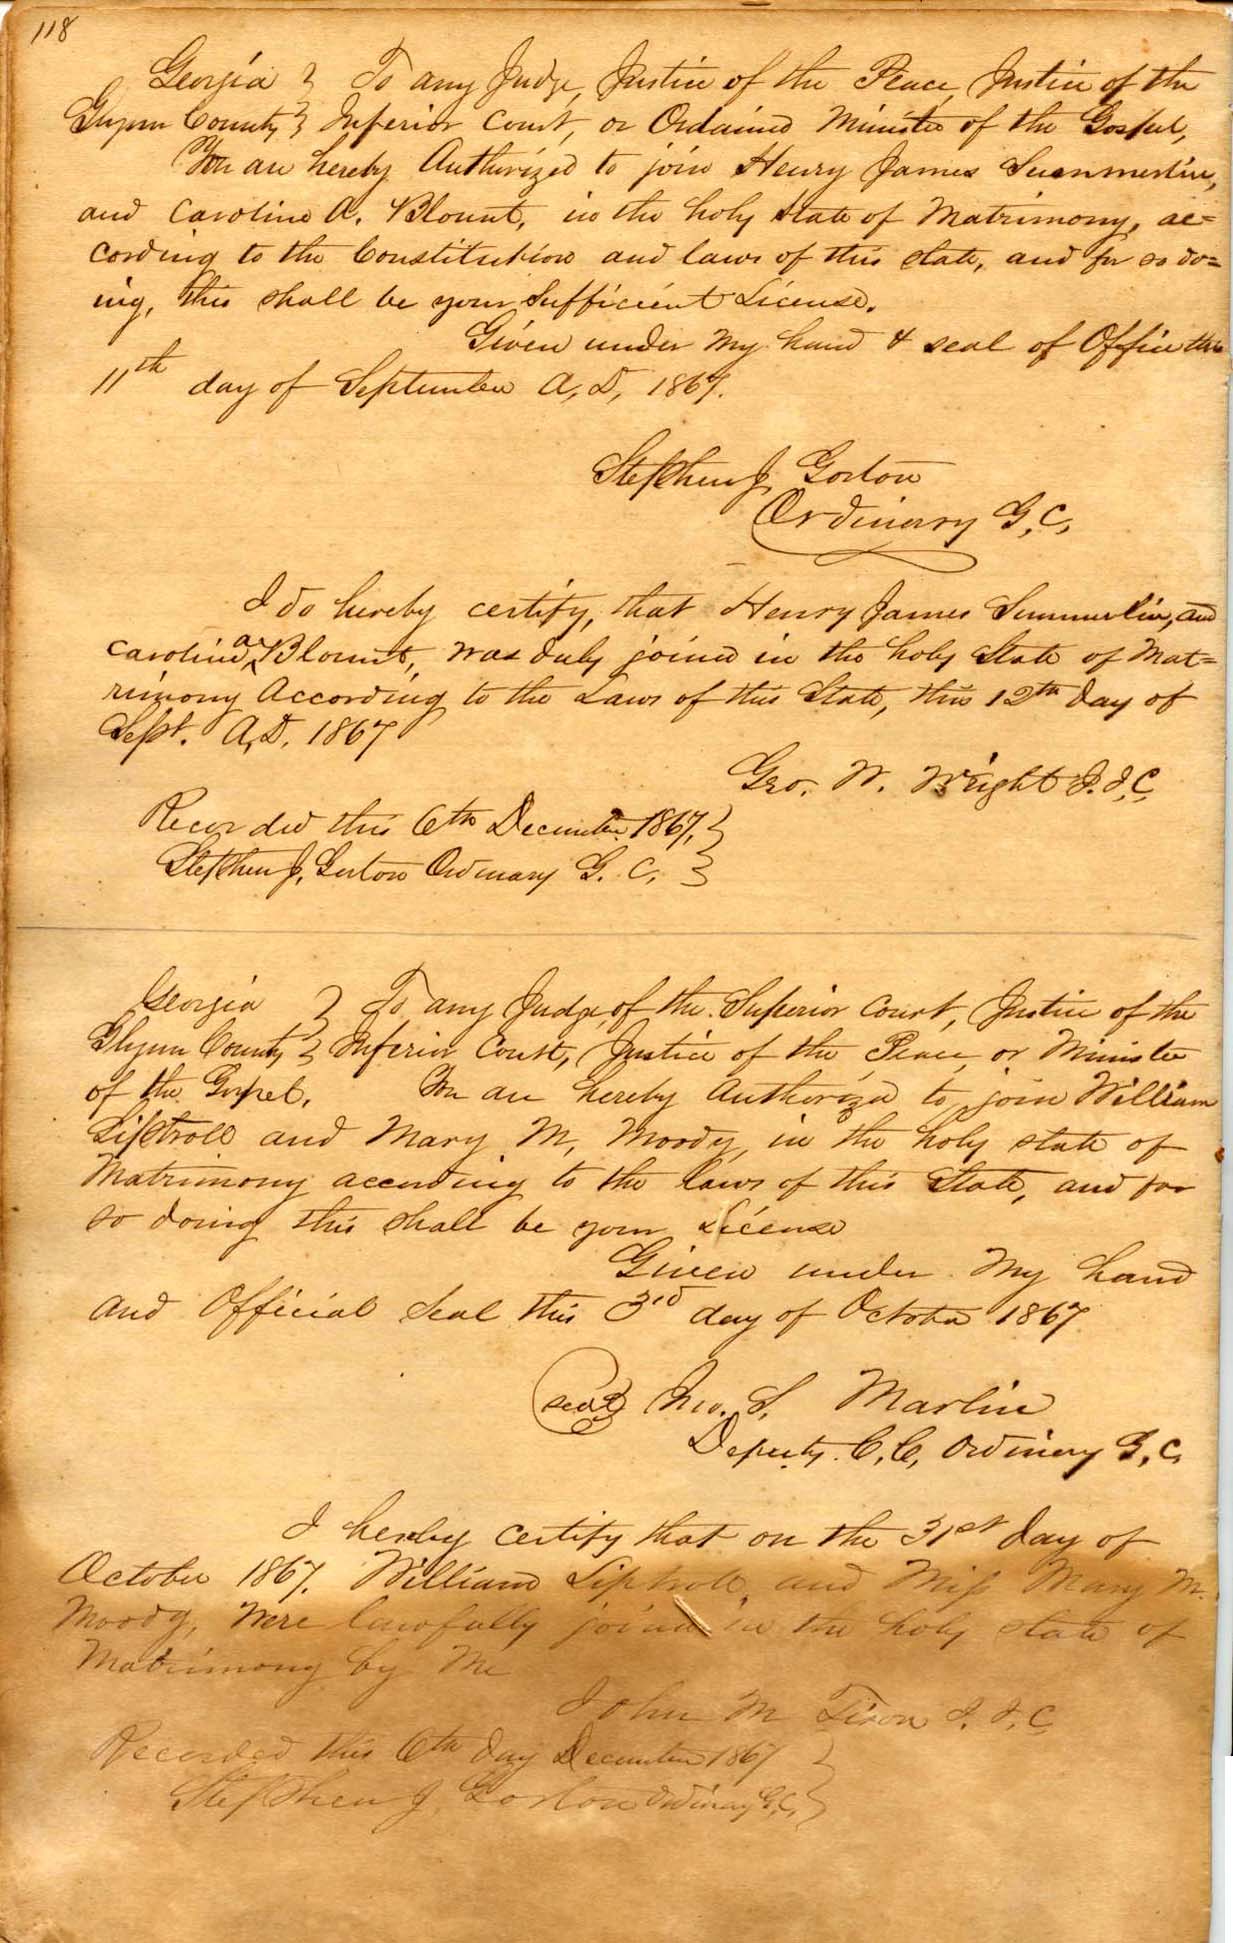 118
Georgia } To any Judge, Justice of the Peace, Justice of the
Glynn County } Inferior Court, or Ordained Minister of the Gospel,
You are hereby Authorized to join Henry James Summerlin,
and Caroline A. Blount, in the holy state of Matrimony, ac=
cording to the Constitution and laws of this state, and for so do=
ing, this shall be your Sufficient License.
Given under my hand & seal of Office this
11th day of September A, D, 1867.
Stephen J. Gorton
Ordinary G, C,
I do hereby certify, that Henry James Summerlin, and
Caroline A Blount, was duly joined in the holy State of Mat=
rimony According to the Laws of this State, this 12th day of
Sept. A, D. 1867
Geo. W. Wright J. I. C.
Recorded this 6th December 1867, }
Stephen J, Gorton Ordinary G. C, }
Georgia } To any Judge of the Superior Court, Justice of the
Glynn County } Inferior Court, Justice of the Peace or Minister
of the Gospel. You are hereby Authorized to join William
Liptroll and Mary M, Moody, in the holy state of
Matrimony according to the laws of this State, and for
so doing this shall be your License
Given under my hand
and Official Seal this 3rd day of October 1867
Seal Jno. S. Marlin
Deputy C, C, Ordinary G, C,
I hereby certify that on the 31st day of
October 1867. William Liptroll and Miss Mary M.
Moody, were lawfully joined in the holy state of
Matrimony by me
John M Tison J. I. C
Recorded this 6th day December 1867 }
Stephen J. Gorton Ordinary G, C, }